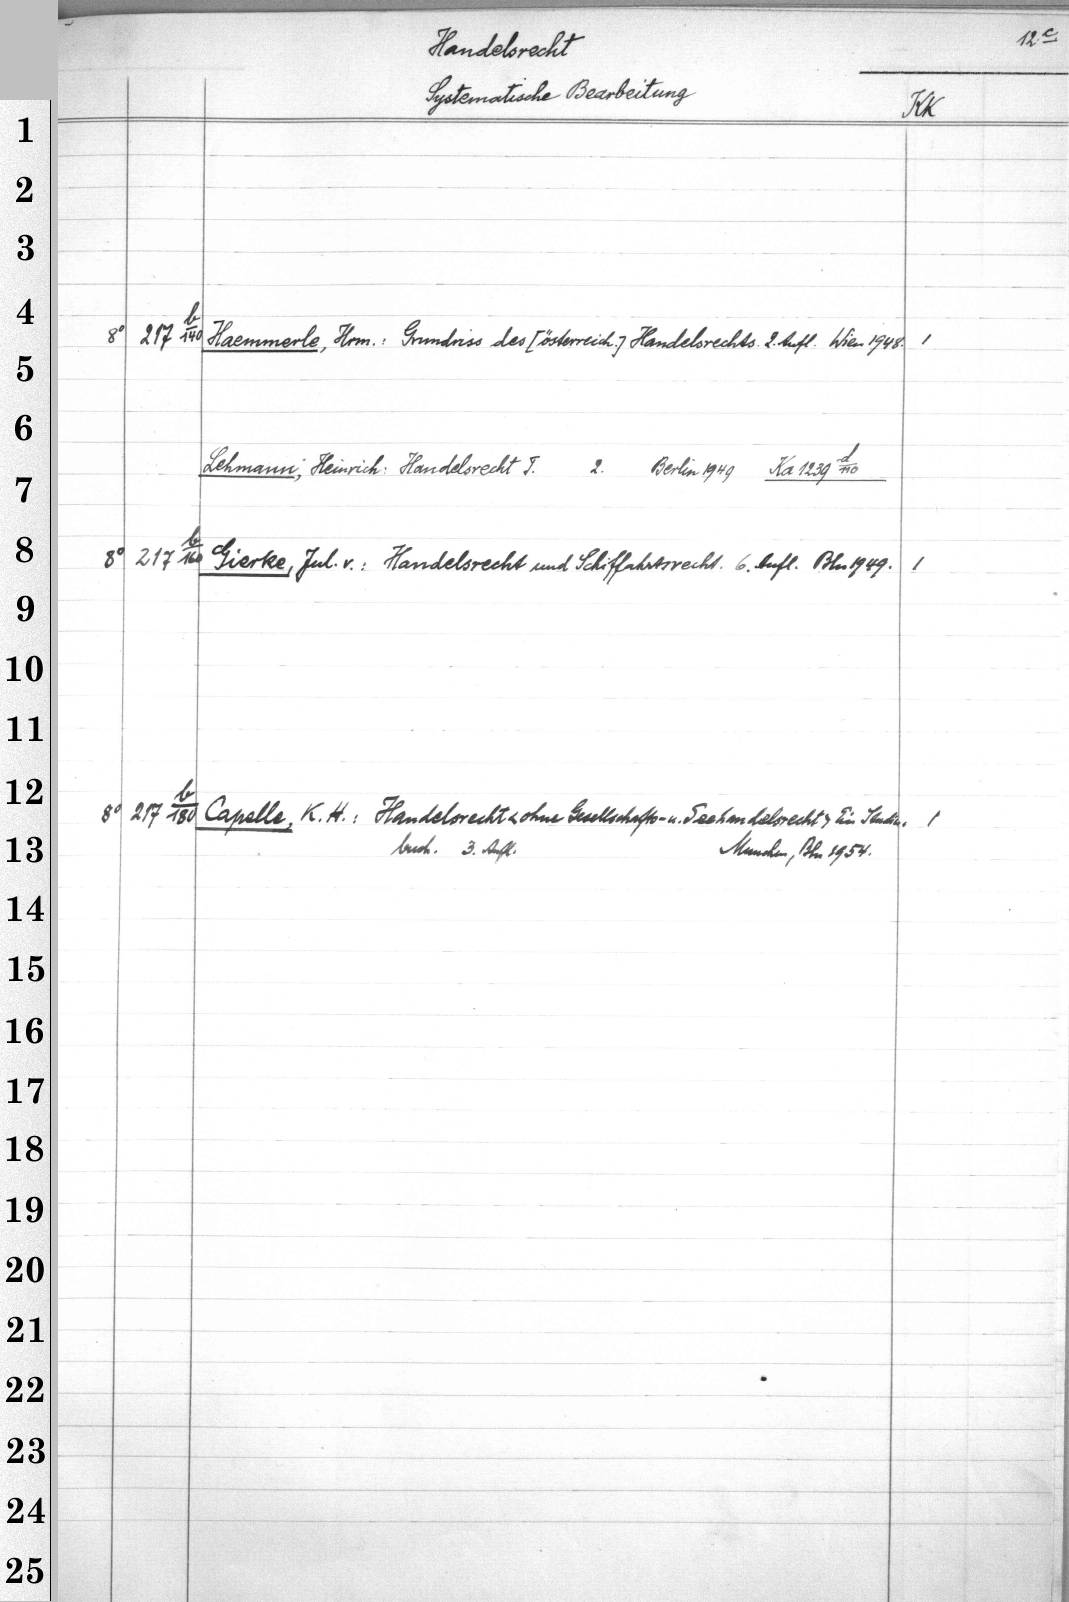 Handelsrecht
12c
Systematische Bearbeitung
KK
1
2
3
4
8° 217 b/140 Haemmerle, Hrm.: Grundriss des [österreich.] Handelsrechts. 2. Aufl. Wien 1948. 1
5
6
Lehmann, Heinrich: Handelsrecht I. 2. Berlin 1949 Ka 1239 d/110
7
8
8° 217 b/160 Gierke, Jul. v.: Handelsrecht und Schiffahrtsrecht. 6. Aufl. Bln 1949. 1
9
10
11
12
8° 217 b/180 Capelle, K. H.: Handelsrecht < ohne Gesellschafts- u. Seehandelsrecht > Ein Studien-
1
13
buch. 3. Aufl. München, Bln 1954.
14
15
16
17
18
19
20
21
22
23
24
25